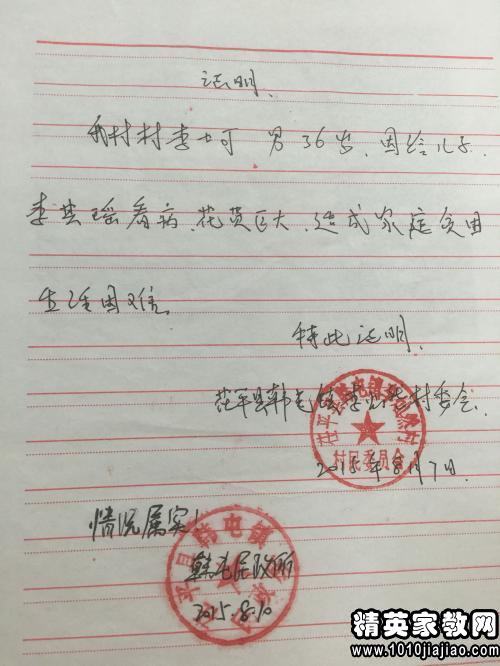 证明
我村村李士可 男36岁,因给儿子
李其瑶看病,花费巨大,造成家庭实困
生活困难
特此证明
茌平县韩屯镇李 村委会
村民委员会
2015年8月7日
情况属实
韩屯民政所
2015.8.10
精英家教网
www.1010jiajiao.com